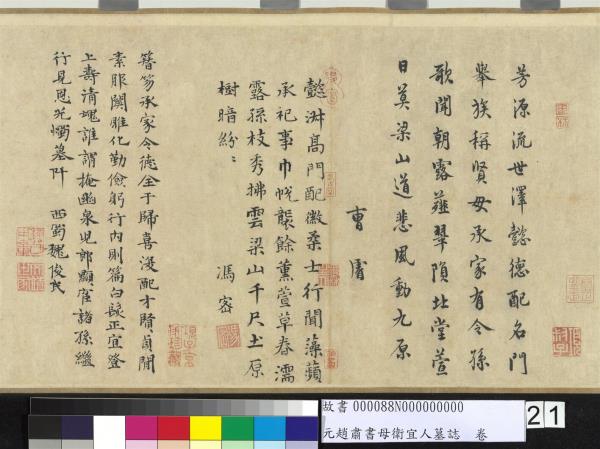 芳源流世澤懿德配名門
舉族稱賢母承家有令孫
歌聞朝露薤翠隕北堂萱
日莫梁山道悲風動九原
曹濬
懿淑高門配徽柔士行聞藻蘋
承祀事巾帨襲餘薰萱草春濡
露孫枝秀拂雲梁山千尺土原
樹暗紛〻
馮宻
簪笏承家令德全于歸喜漫配才賢貞閒
素服關雎化勤儉躬行內則篇白髮正宜登
上壽清魂誰謂掩幽泉児郎顯宦諸孫繼
行見恩光燭墓阡 西蜀魏俊民
故書 000088N000000000
元趙肅書母衛宜人墓誌 卷
21